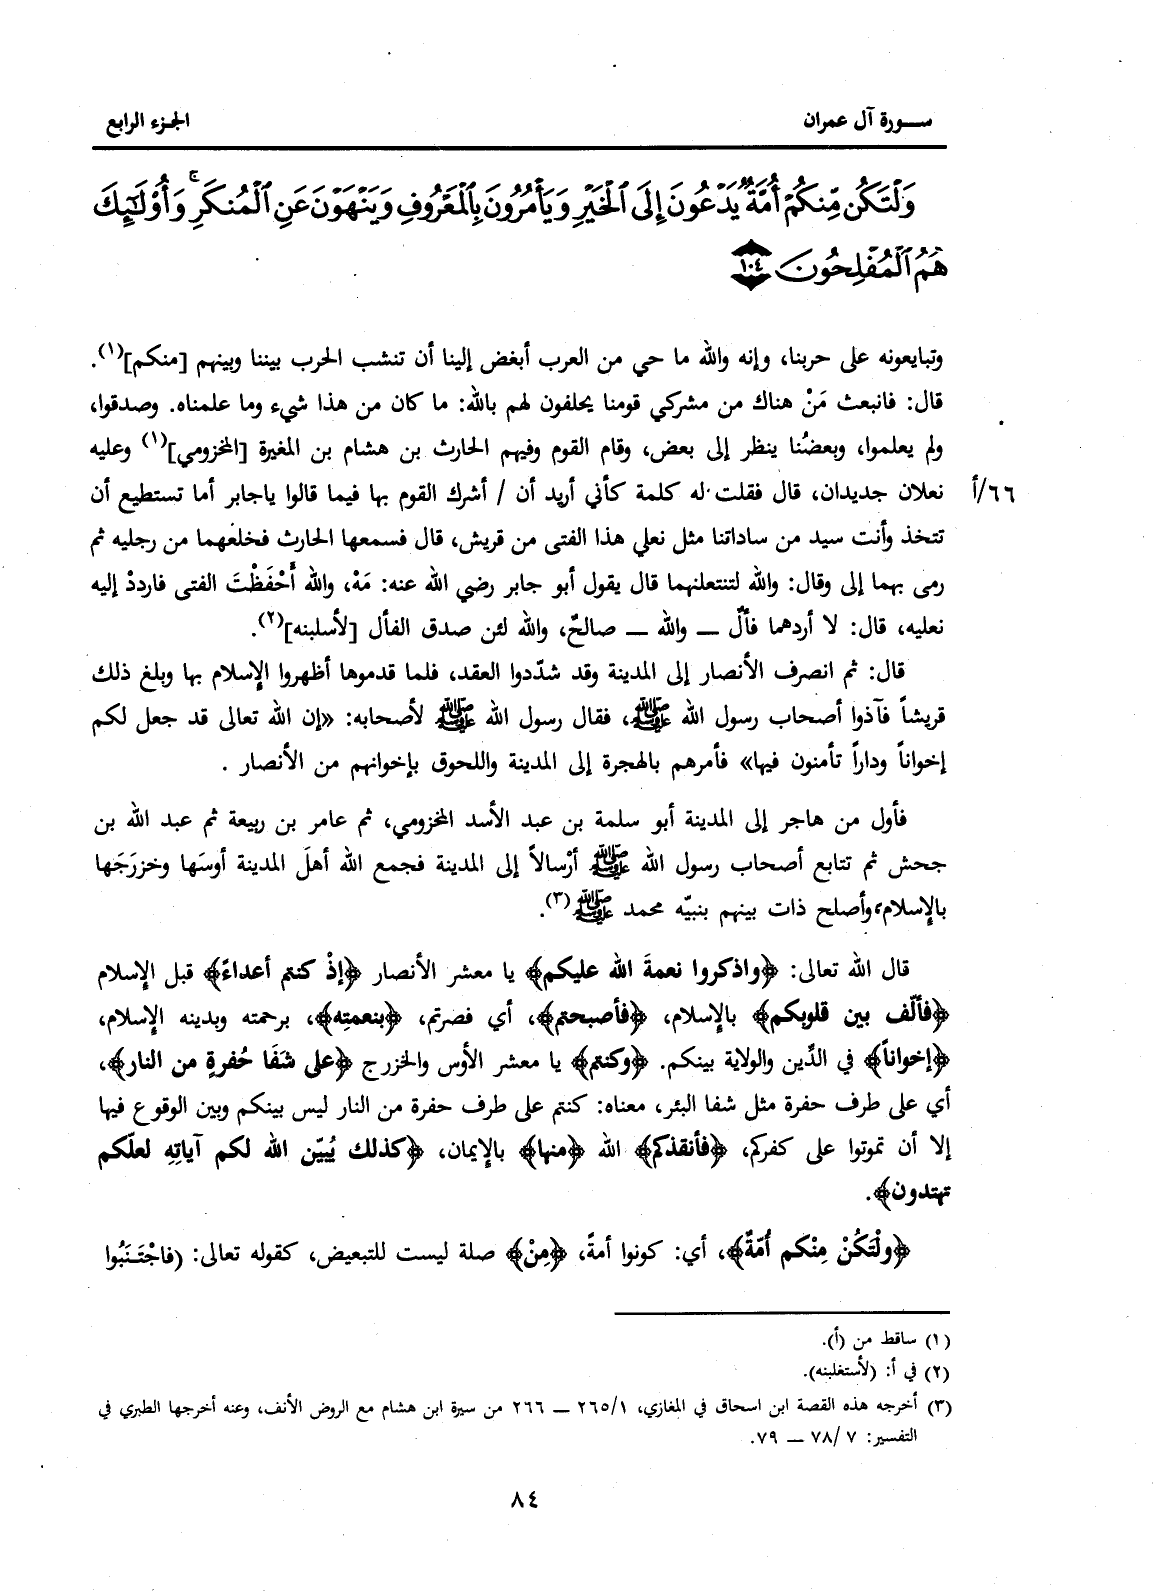 سـورة آل عمران
الجزء الرابع
وَلْتَكُن مِّنكُمْ أُمَّةٌ يَدْعُونَ إِلَى ٱلْخَيْرِ وَيَأْمُرُونَ بِٱلْمَعْرُوفِ وَيَنْهَوْنَ عَنِ ٱلْمُنكَرِ ۚ وَأُوْلَـٰٓئِكَ
هُمُ ٱلْمُفْلِحُونَ ١٠٤
وتبايعونه على حربنا، وإنه والله ما حي من العرب أبغض إلينا أن تنشب الحرب بيننا وبينهم [منكم](١).
قال: فانبعث مَنْ هناك من مشركي قومنا يحلفون لهم بالله: ما كان من هذا شيء وما علمناه. وصدقوا،
ولم يعلموا، وبعضُنا ينظر إلى بعض، وقام القوم وفيهم الحارث بن هشام بن المغيرة [المخزومي](١) وعليه
نعلان جديدان، قال فقلت له كلمة كأني أريد أن / أشرك القوم بها فيما قالوا ياجابر أما تستطيع أن
٦٦/أ
تتخذ وأنت سيد من ساداتنا مثل نعلي هذا الفتى من قريش، قال فسمعها الحارث فخلعهما من رجليه ثم
رمى بهما إلى وقال: والله لتنتعلنهما قال يقول أبو جابر رضي الله عنه: مَهْ، والله أَحْفَظْتَ الفتى فارددْ إليه
نعليه، قال: لا أردهما فألٌ — والله — صالحٌ، والله لئن صدق الفأل [لأسلبنه](٢).
قال: ثم انصرف الأنصار إلى المدينة وقد شدّدوا العقد، فلما قدموها أظهروا الإسلام بها وبلغ ذلك
قريشاً فآذوا أصحاب رسول الله ﷺ، فقال رسول الله ﷺ لأصحابه: «إن الله تعالى قد جعل لكم
إخواناً وداراً تأمنون فيها» فأمرهم بالهجرة إلى المدينة واللحوق بإخوانهم من الأنصار .
فأول من هاجر إلى المدينة أبو سلمة بن عبد الأسد المخزومي، ثم عامر بن ربيعة ثم عبد الله بن
جحش ثم تتابع أصحاب رسول الله ﷺ أرْسالاً إلى المدينة فجمع الله أهلَ المدينة أوسَها وخزرَجَها
بالإسلام، وأصلح ذات بينهم بنبيّه محمد ﷺ(٣).
قال الله تعالى: ﴿واذكروا نعمةَ الله عليكم﴾ يا معشر الأنصار ﴿إذْ كنتم أعداءً﴾ قبل الإسلام
﴿فألّف بين قلوبكم﴾ بالإسلام، ﴿فأصبحتم﴾، أي فصرتم، ﴿بنعمتِه﴾، برحمته وبدينه الإسلام،
﴿إخواناً﴾ في الدِّين والولاية بينكم. ﴿وكنتم﴾ يا معشر الأوس والخزرج ﴿على شَفَا حُفرةٍ من النار﴾،
أي على طرف حفرة مثل شفا البئر، معناه: كنتم على طرف حفرة من النار ليس بينكم وبين الوقوع فيها
إلا أن تموتوا على كفركم، ﴿فأنقذكم﴾ الله ﴿منها﴾ بالإيمان، ﴿كذلك يُبيّن الله لكم آياتِهِ لعلّكم
تهتدون﴾.
﴿ولْتَكُنْ مِنْكم أُمّةٌ﴾، أي: كونوا أمةً، ﴿مِنْ﴾ صلة ليست للتبعيض، كقوله تعالى: (فاجْتَـنبُوا
(١) ساقط من (أ).
(٢) في أ: (لأستغلبنه).
(٣) أخرجه هذه القصة ابن اسحاق في المغازي، ٢٦٥/١ — ٢٦٦ من سيرة ابن هشام مع الروض الأنف، وعنه أخرجها الطبري في
التفسير: ٧ /٧٨ — ٧٩.
٨٤